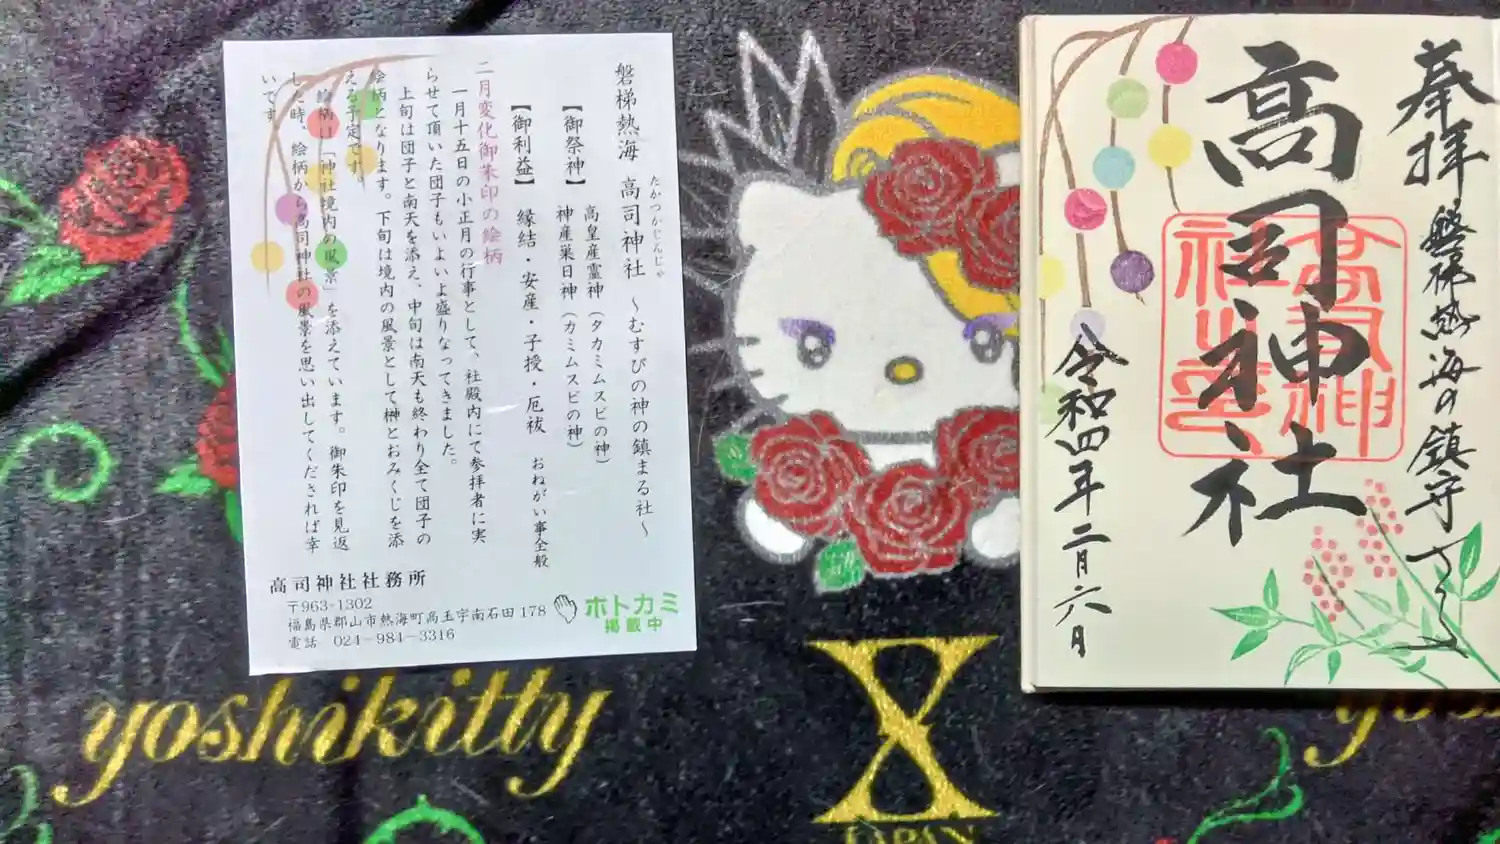 磐梯熱海 高司神社 ～むすびの神の鎮まる社～
たかつかじんじゃ
【御祭神】 高皇産霊神（タカミムスビの神）
神産巣日神（カミムスビの神）
【御利益】 縁結・安産・子授・厄祓 おねがい事全般
二月変化御朱印の絵柄
一月十五日の小正月の行事として、社殿内にて参拝者に実
らせて頂いた団子もいよいよ盛りなってきました。
上旬は団子と南天を添え、中旬は南天も終わり全て団子の
絵柄となります。下旬は境内の風景として榊とおみくじを添
える予定です。
絵柄は「神社境内の風景」を添えています。御朱印を見返
した時、絵柄から高司神社の風景を思い出してくだされば幸
いです。
高司神社社務所
〒963-1302
福島県郡山市熱海町高玉字南石田178
電話 024-984-3316
ホトカミ
掲載中
奉拝 磐梯熱海の鎮守
高司神社
高司神社之印
令和四年二月六日
yoshikitty
X
JAPAN